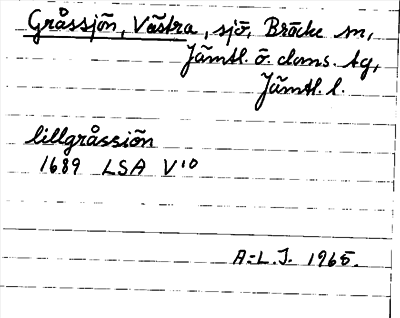 Gråssjön, Västra, sjö, Bräcke sn,
Jämtl. ö. doms. tg,
Jämtl. l.
lillgråssiön
1689 LSA V10
A-L.J. 1965.